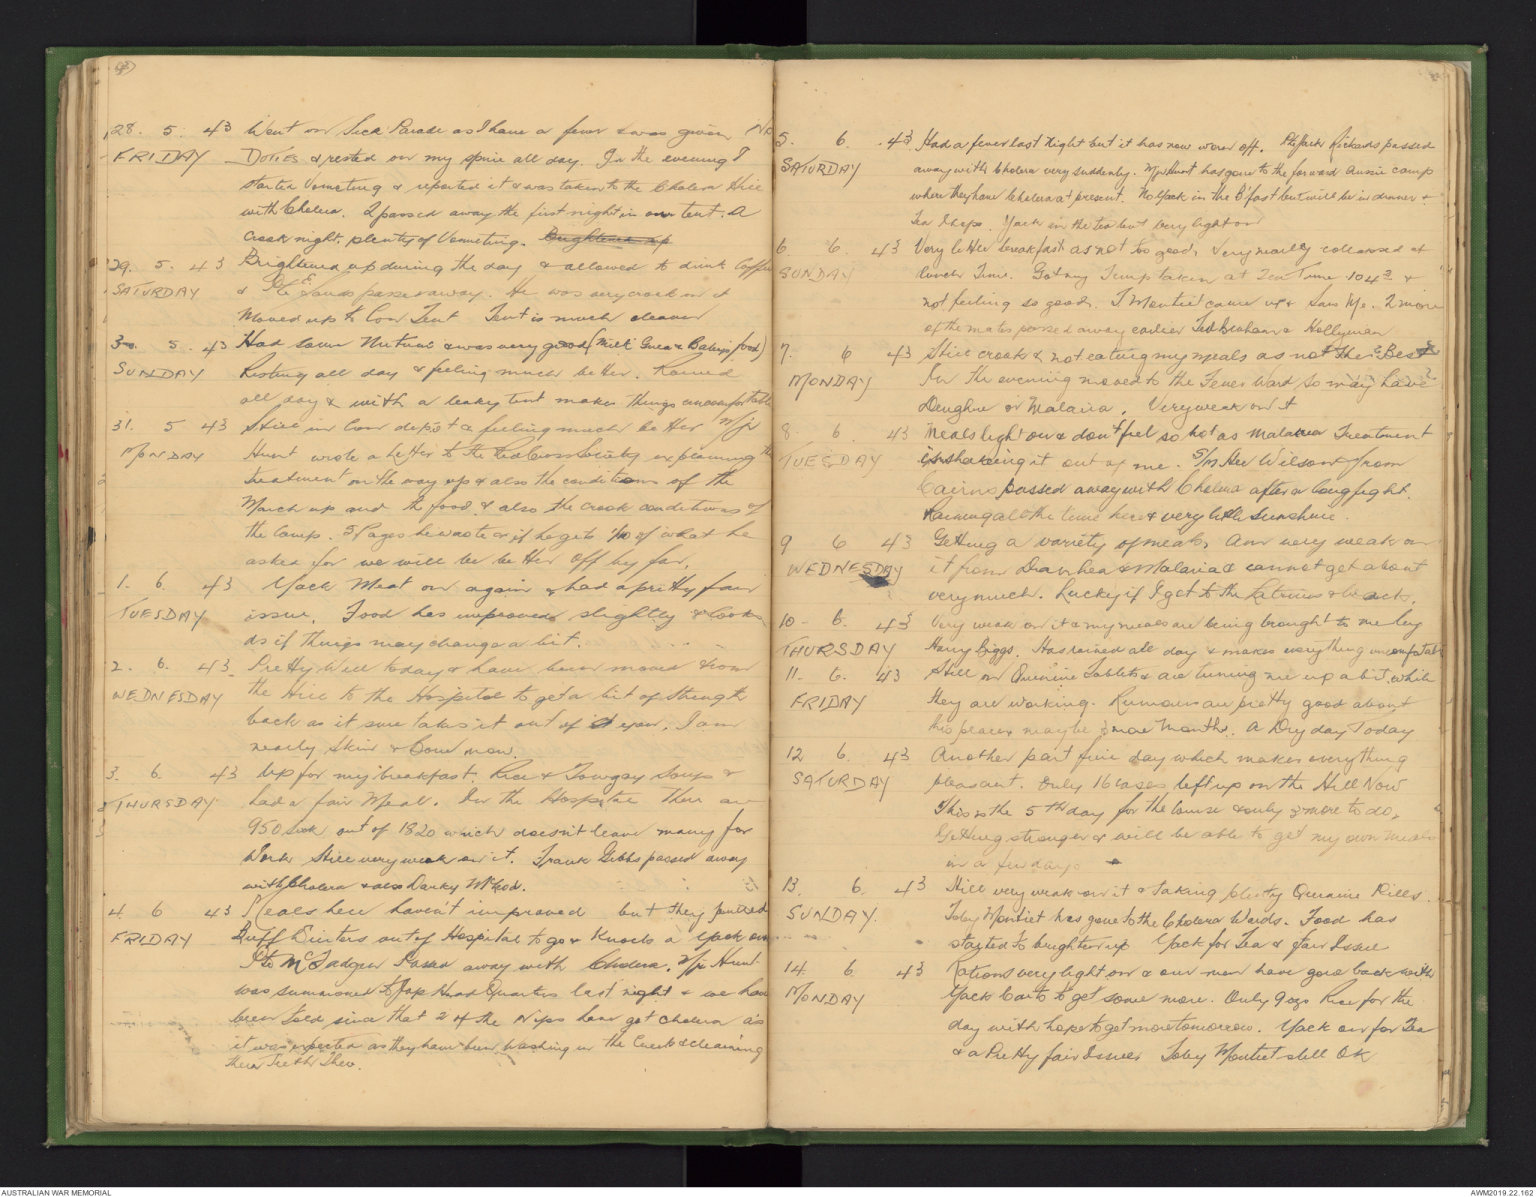 28. 5. 43 Went on Sick Parade as I have a fever & was given No
FRIDAY DUTIES & rested on my spine all day. In the evening I
started Vomiting & reported it & was taken to the Cholera Hill
with Cholera. 2 passed away the first night in our tent. A
crook night, plenty of Vomiting. Brightened up
29. 5. 43 Brightened up during the day & allowed to drink Coffee
SATURDAY & Pte passed away. He was very crook on it
Moved up to Con Tent Tent is much cleaner
30. 5. 43 Had some Nutrine & was very good (Milk & Babys food)
SUNDAY Resting all day & feeling much better. Rained
all day & with a leaky tent makes things uncomfortable
31. 5 43 Still in Con depot & feeling much better Mjr
MONDAY Hunt wrote a letter to the Red Cross Society explaining the
treatment on the way up & also the conditions of the
March up and the food & also the crook conditions of
the Camp. 5 Pages he wrote & if he gets 1/10 of what he
asked for we will be better off by far.
1. 6. 43 Yack Meat on again & had a pretty fair
TUESDAY issue. Food has improved slightly & looks
as if things may change a bit.
2. 6. 43 Pretty Well today & have been moved from
WEDNESDAY the Hill to the Hospital to get a bit of strength
back as it sure takes it out of you. I am
nearly Skin & Bone now.
3. 6. 43 Up for my breakfast. Rice & Towgay Soup &
THURSDAY had a fair Meal. In the Hospital There are
950 sick out of 1820 which doesn't leave many for
Work Still very weak on it. Frank Gibbs passed away
with Cholera & also Darky McLeod.
4. 6 43 Meals here haven't improved but they
FRIDAY Duff out of Hospital to go & Knock a Yack over
Pte Passed away with Cholera. Mjr Hunt
was summoned to Jap Head Quarters last night & we have
been told since that 2 of the Nips have got cholera as
it was expected as they have been Washing in the Creek & cleaning
their Teeth Theo.
5. 6. 43 Had a fever last night but it has now worn off. Pte Jack Rickards passed
SATURDAY away with Cholera very suddenly. Mjr Hunt has gone to the forward Aussie camp
where they have Cholera at present. No Yack in the B'fast but will be in dinner &
Tea I hope. Yack in the tea but very light on
6 6 43 Very little breakfast as not too good & Very nearly collapsed at
SUNDAY lunch Time. Got my Temp taken at Tea Time 104.2 &
not feeling so good. T Montiet came up & Saw Me. 2 more
of the mates passed away earlier Ted Graham & Hollyman
7. 6 43 Still crook & not eating my meals as not The Best
MONDAY In the evening moved to the Fever Ward so may have
Denghue or Malaria. Very weak on it
8. 6. 43 Meals light on & don't feel so hot as Malaria Treatment
TUESDAY is shakeing it out of me. S/M Wilson from
Cairns passed away with Cholera after a long fight.
Raining all the time here & very little Sunshine.
9 6 43 Getting a variety of meals, Am very weak on
WEDNESDAY it from Diarrhea & Malaria & cannot get about
very much. Lucky if I get to the Latrines & back.
10. 6. 43 Very weak on it & my meals are being brought to me by
THURSDAY Harry Biggs. Has rained all day & makes everything uncomfortable
11. 6. 43 Still on Quinine Tablets & are tuning me up a bit while
FRIDAY they are working. Rumours are pretty good about
his peace maybe 3 more Months. A Dry day Today
12 6. 43 Another part fine day which makes everything
SATURDAY pleasant. Only 16 cases left up on the Hill Now
This is the 5th day for the course & only 3 more to do,
Getting stronger & will be able to get my own meals
in a few days
13. 6. 43 Still very weak on it & taking plenty Quinine Pills.
SUNDAY. Toby Montiet has gone to the Cholera Wards. Food has
started to brighten up Yack for Tea & fair Issue
14. 6 43 Rations very light on & our men have gone back with
MONDAY Yack Carts to get some more. Only 9 ozs Rice for the
day with hope to get more tomorrow. Yack on for Tea
& a Pretty fair Issue Toby Montiet still OK
AUSTRALIAN WAR MEMORIAL
AWM2019.22.162